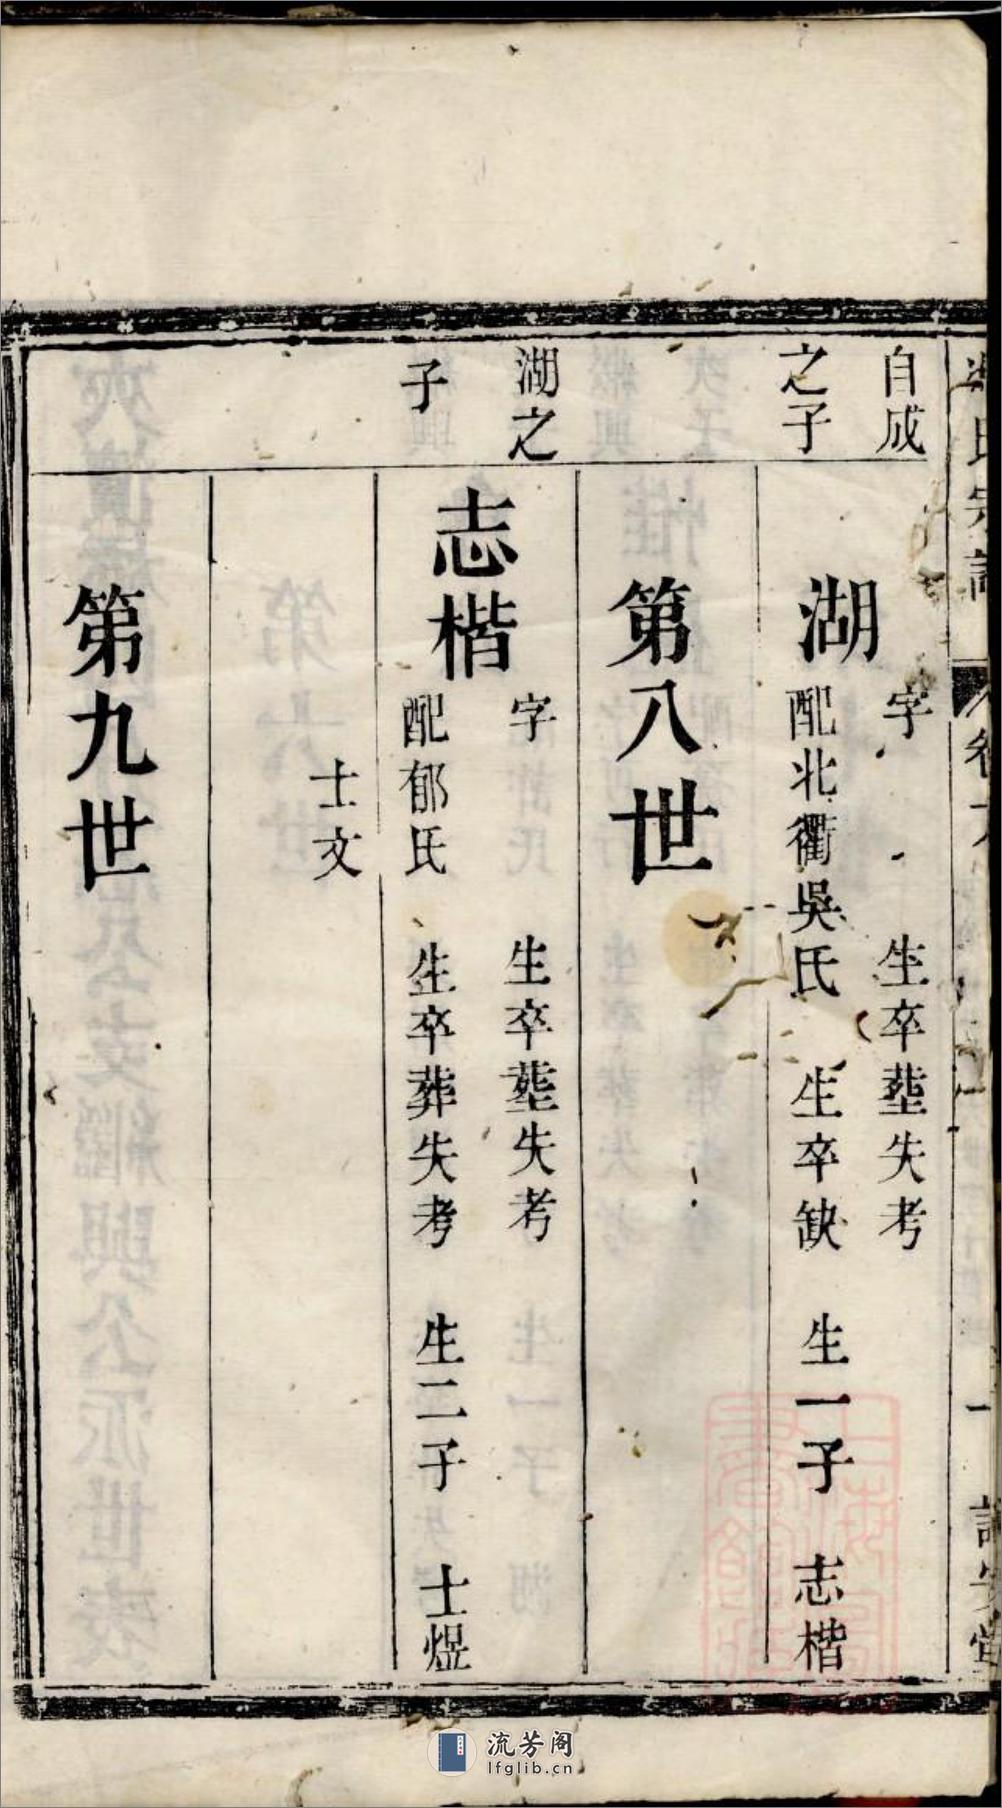 自成
之子
湖
字 生卒塟失考
配北衢吳氏 生卒缺 生一子 志楷
第八世
湖之
子
志楷
字 生卒塟失考
配郁氏 生卒葬失考 生二子 士煜
士文
第九世
流芳阁
lfglib.cn